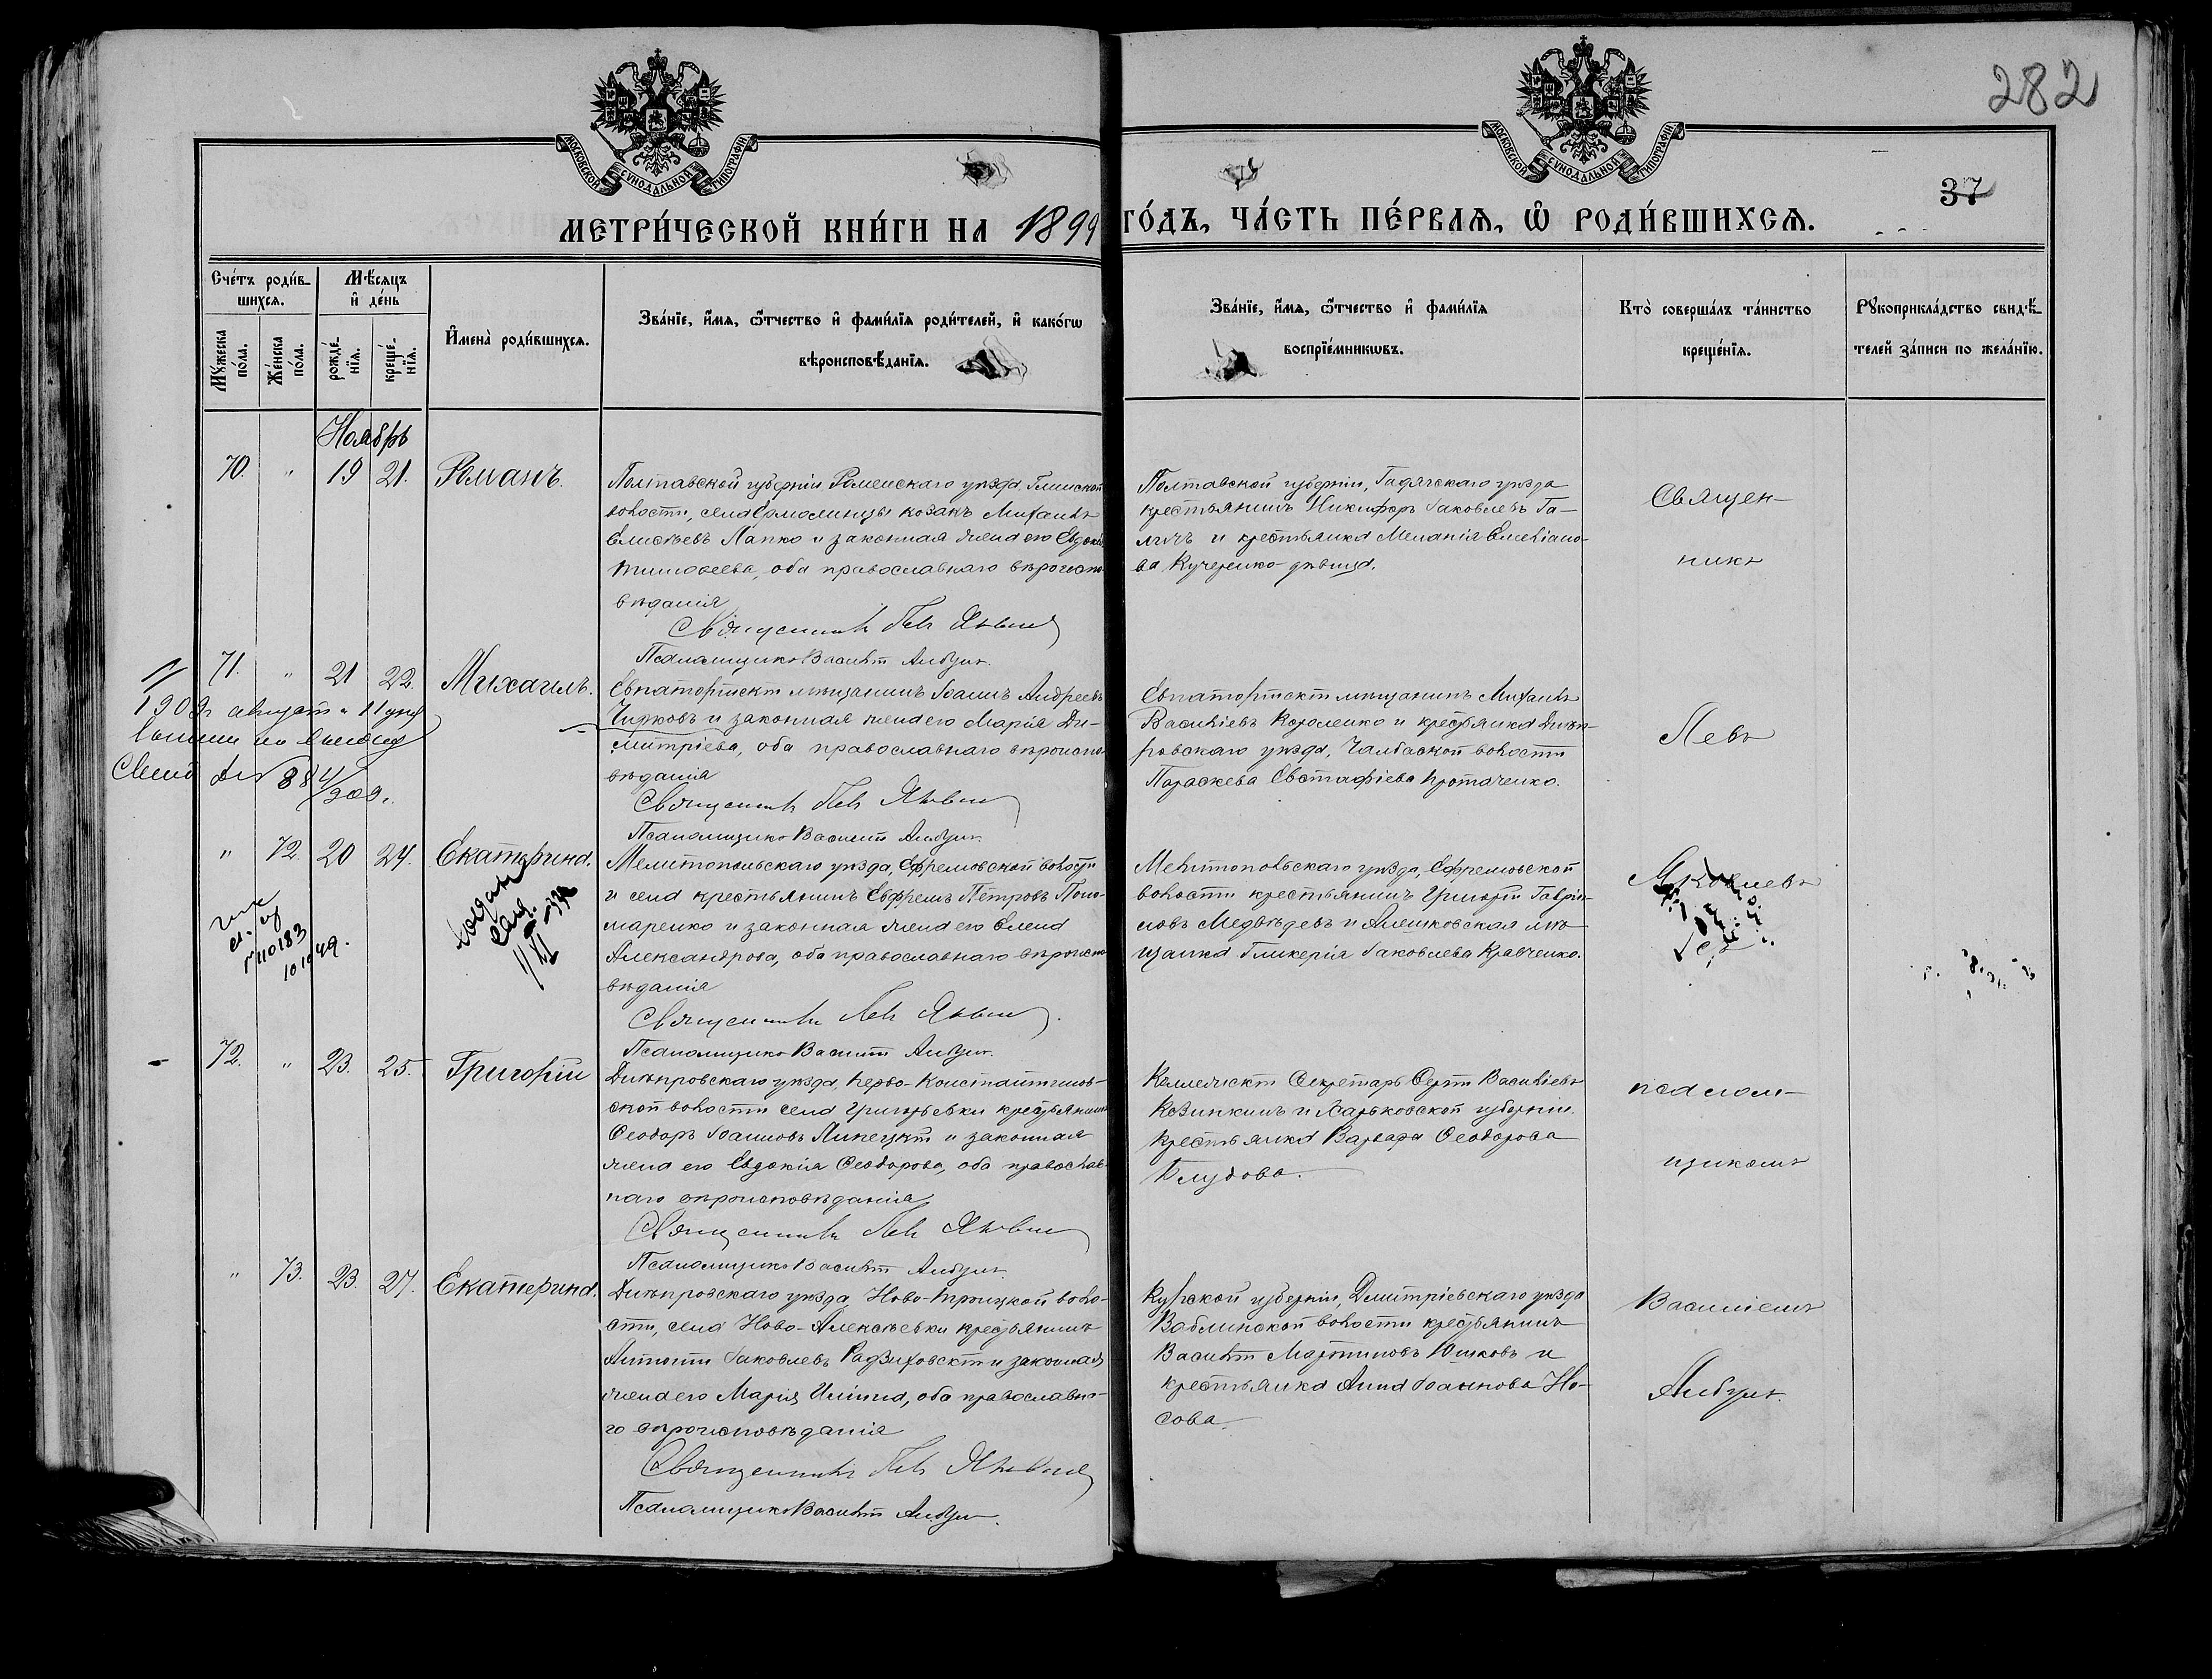 282
37
МОСКОВСКОЙ СѴНОДАЛЬНОЙ ТИПОГРАФІИ
МОСКОВСКОЙ СѴНОДАЛЬНОЙ ТИПОГРАФІИ
МЕТРИ́ЧЕСКОЙ КНИ́ГИ НА 1899 ГО́ДЪ, ЧА́СТЬ ПЕ́РВАѦ, Ѡ҆ РОДИ́ВШИХСѦ.
Сче́тъ роди́в-
шихсѧ.
Мꙋ́жеска
по́ла.
Же́нска
по́ла.
Мѣ́сѧцъ
и҆ де́нь
рожде́-
нїѧ.
креще́-
нїѧ.
И҆мена̀ роди́вшихсѧ.
Зва́нїе, и҆́мѧ, ѻ҆́тчество и҆ фами́лїѧ роди́телей, и҆ како́гѡ
вѣроисповѣ́данїѧ.
Зва́нїе, и҆́мѧ, ѻ҆́тчество и҆ фами́лїѧ
воспрїе́мникѡвъ.
Кто̀ соверша́лъ та́инство
креще́нїѧ.
Рꙋкоприкла́дство свидѣ́-
телей за́писи по жела́нїю.
Ноябрь
70. " 19 21. Романъ.
Полтавской губерніи Роменскаго уѣзда, Глинской
волости, села Ярмолинцы козакъ Михаилъ
Елисѣевъ Лапко и законная жена его Евдокія
Тимоѳеева, оба православнаго вѣроиспо-
вѣданія
Священникъ Левъ Яковлевъ
Псаломщикъ Василій Анбулъ.
Полтавской губерніи, Гадячскаго уѣзда
крестьянинъ Никифоръ Іаковлевъ Га-
личъ и крестьянка Меланія Емеліано-
ва Кучеренко-дѣвица.
71. " 21 22. Михаилъ.
1909 августа 11 дня
№ 884/909.
Евпаторійскій мѣщанинъ Іоаннъ Андреевъ
Чирковъ и законная жена его Марія Ди-
митріева, оба православнаго вѣроиспо-
вѣданія
Священникъ Левъ Яковлевъ
Псаломщикъ Василій Анбулъ.
Евпаторійскій мѣщанинъ Михаилъ
Василіевъ Короленко и крестьянка Днѣп-
ровскаго уѣзда, Чалбасской волости
Параскева Евстафіева Протаченко.
" 72. 20 24. Екатерина.
110183
Мелитопольскаго уѣзда, Ефремовской волости
и села крестьянинъ Евфремъ Петровъ Поно-
маренко и законная жена его Елена
Александрова, оба православнаго вѣроиспо-
вѣданія
Священникъ Левъ Яковлевъ.
Псаломщикъ Василій Анбулъ.
Мелитопольскаго уѣзда, Ефремовской
волости крестьянинъ Григорій Гаврії-
ловъ Медвѣдевъ и Алешковская мѣ-
щанка Гликерія Іаковлева Кравченко.
72. " 23. 25. Григорій
Днѣпровскаго уѣзда, Перво-Константинов-
ской волости села Григорьевки крестьянинъ
Ѳеодоръ Іоанновъ Липецкій и законная
жена его Евдокія Ѳеодорова, оба православ-
наго вѣроисповѣданія
Священникъ Левъ Яковлевъ
Псаломщикъ Василій Анбулъ.
Коллежскій Секретарь Сергій Василіевъ
Козинкинъ и Харьковской губерніи
крестьянка Варвара Ѳеодорова
Блудова.
" 73. 23. 27. Екатерина.
Днѣпровскаго уѣзда, Ново-Троицкой воло-
сти, села Ново-Алексѣевки крестьянинъ
Антоній Іаковлевъ Радзиховскій и законная
жена его Марія Ильина, оба православна-
го вѣроисповѣданія
Священникъ Левъ Яковлевъ
Псаломщикъ Василій Анбулъ.
Курской губерніи, Дмитріевскаго уѣзда
Ваблинской волости крестьянинъ
Василій Мартиновъ Юшковъ и
крестьянка Анна Іоаннова Но-
сова
Священ-
никъ
Левъ
Яковлевъ
псалом-
щикомъ
Василіемъ
Анбулъ.